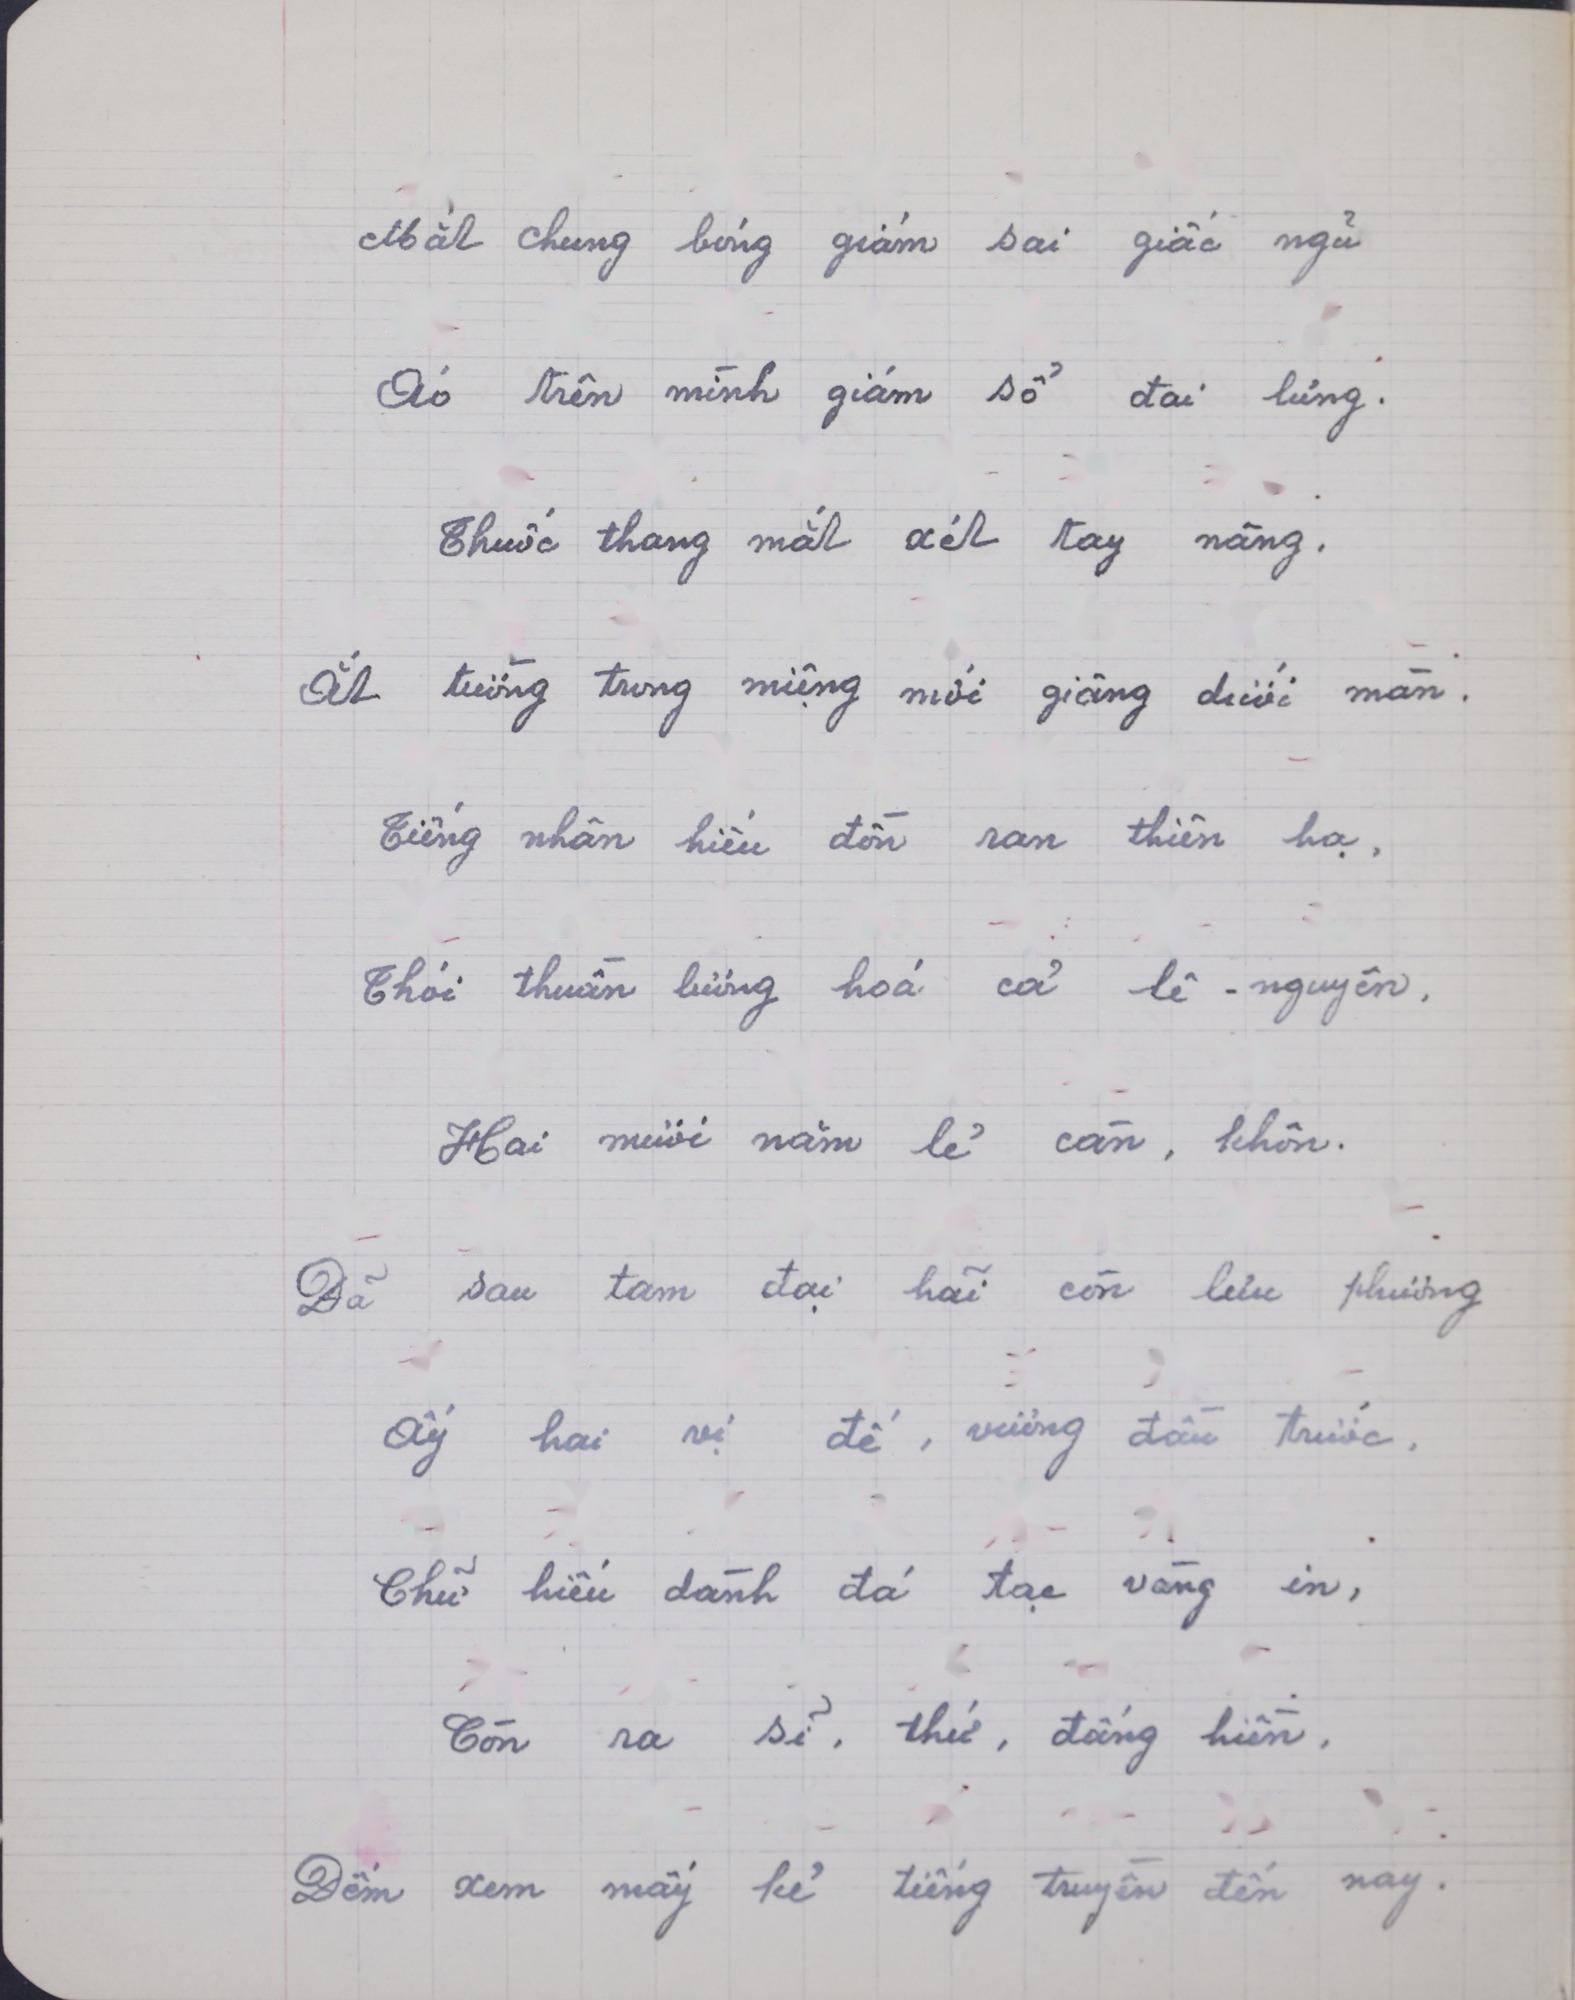 Mắt chung bóng giám sai giấc ngủ
Áo trên mình giám sổ đai lưng.
Thuốc thang mắt xét tay nâng.
Ắt tường trong miệng mới giâng dưới màn.
Tiếng nhân hiếu đồn ran thiên hạ,
Thói thuần lương hoá cả lê - nguyên,
Hai mươi năm lẻ càn, khôn.
Dẫ sau tam đại hãi còn lưu phương
Ấy hai vị đế, vương đầu trước,
Chữ hiếu dành đá tạc vàng in,
Còn ra sĩ, thứ, đấng hiền,
Đếm xem mấy kẻ tiếng truyền đến nay.